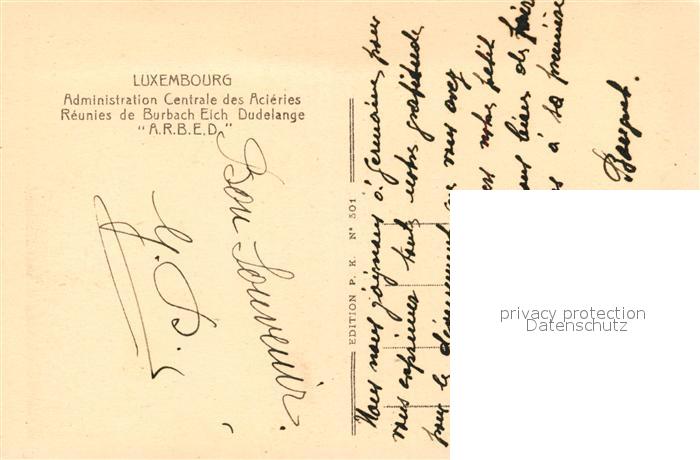 LUXEMBOURG
Administration Centrale des Aciéries
Réunies de Burbach Eich Dudelange
"A.R.B.E.D."
Bon Souvenir.
G. B.
EDITION P. K. N° 301
Nous nous joignons à Germaine pour
vous exprimer toute notre gratitude
pour le dévouement que vous avez
notre petit
vous de
à sa première
privacy protection
Datenschutz